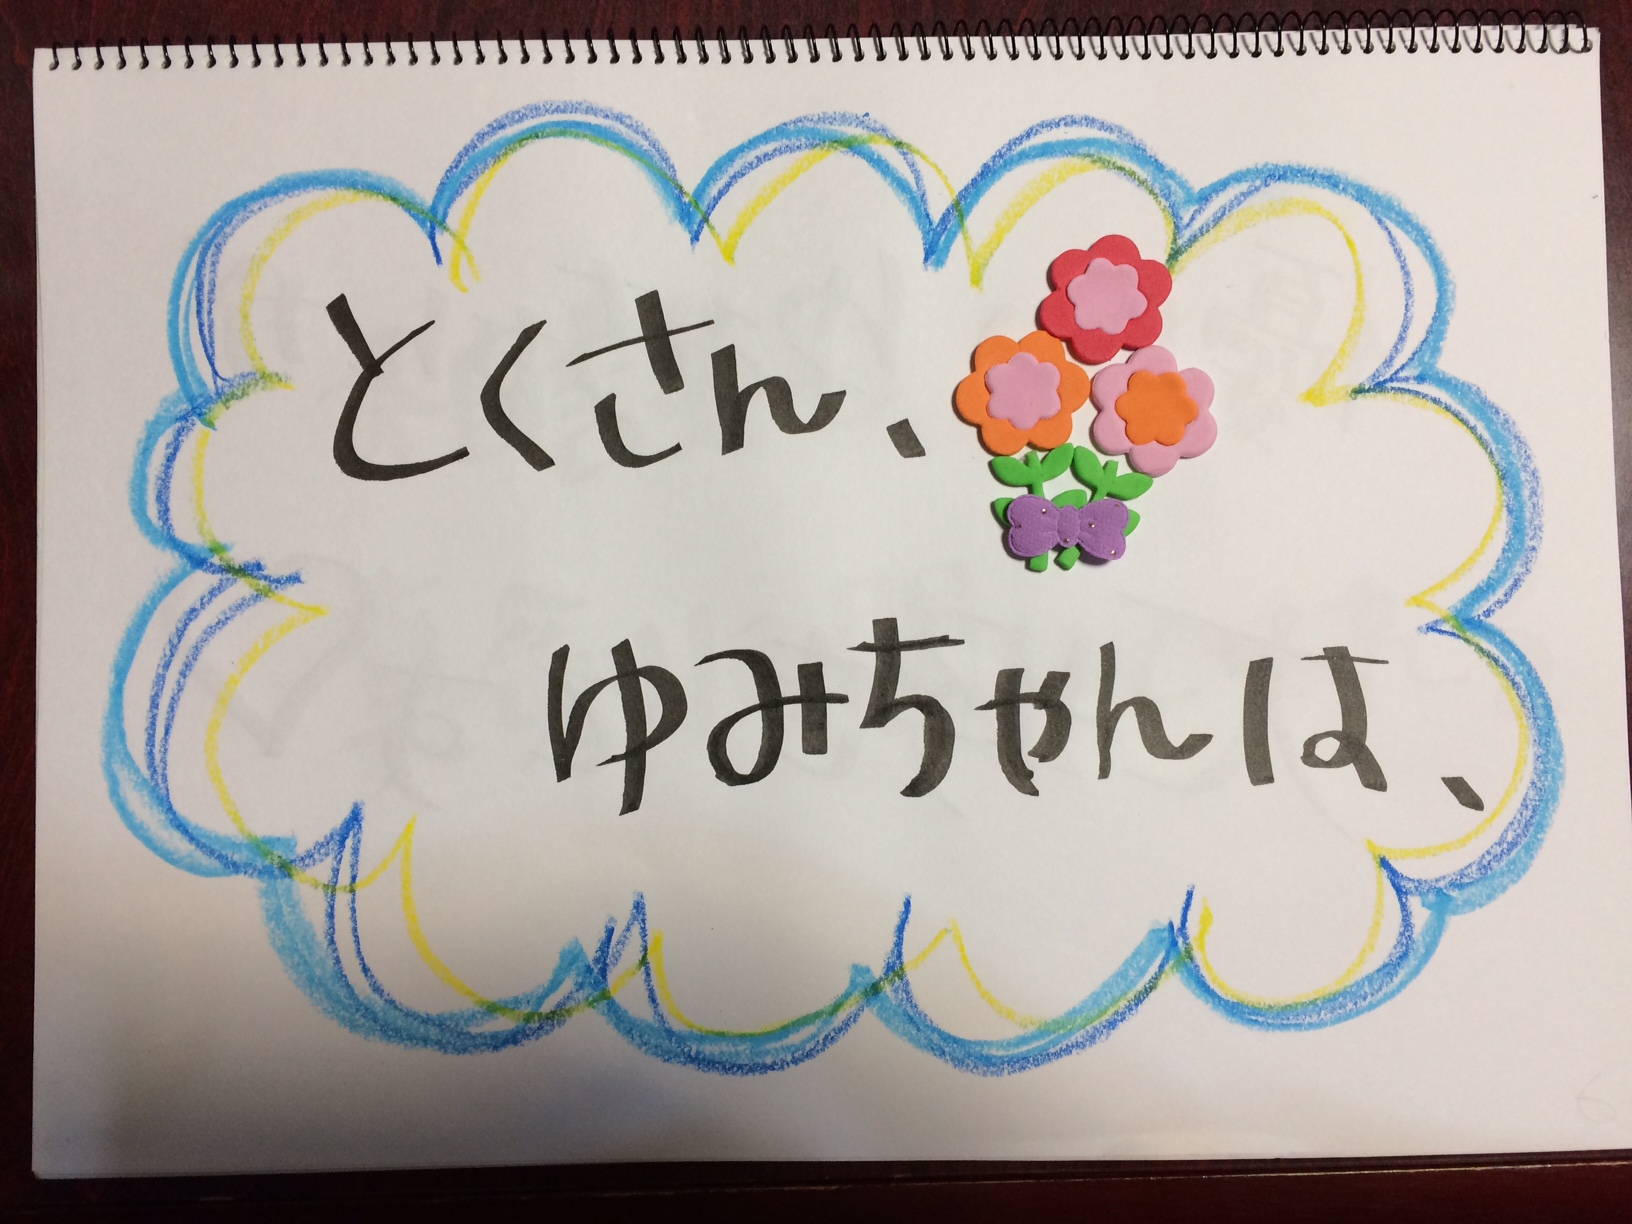 とくさん、
ゆみちゃんは、